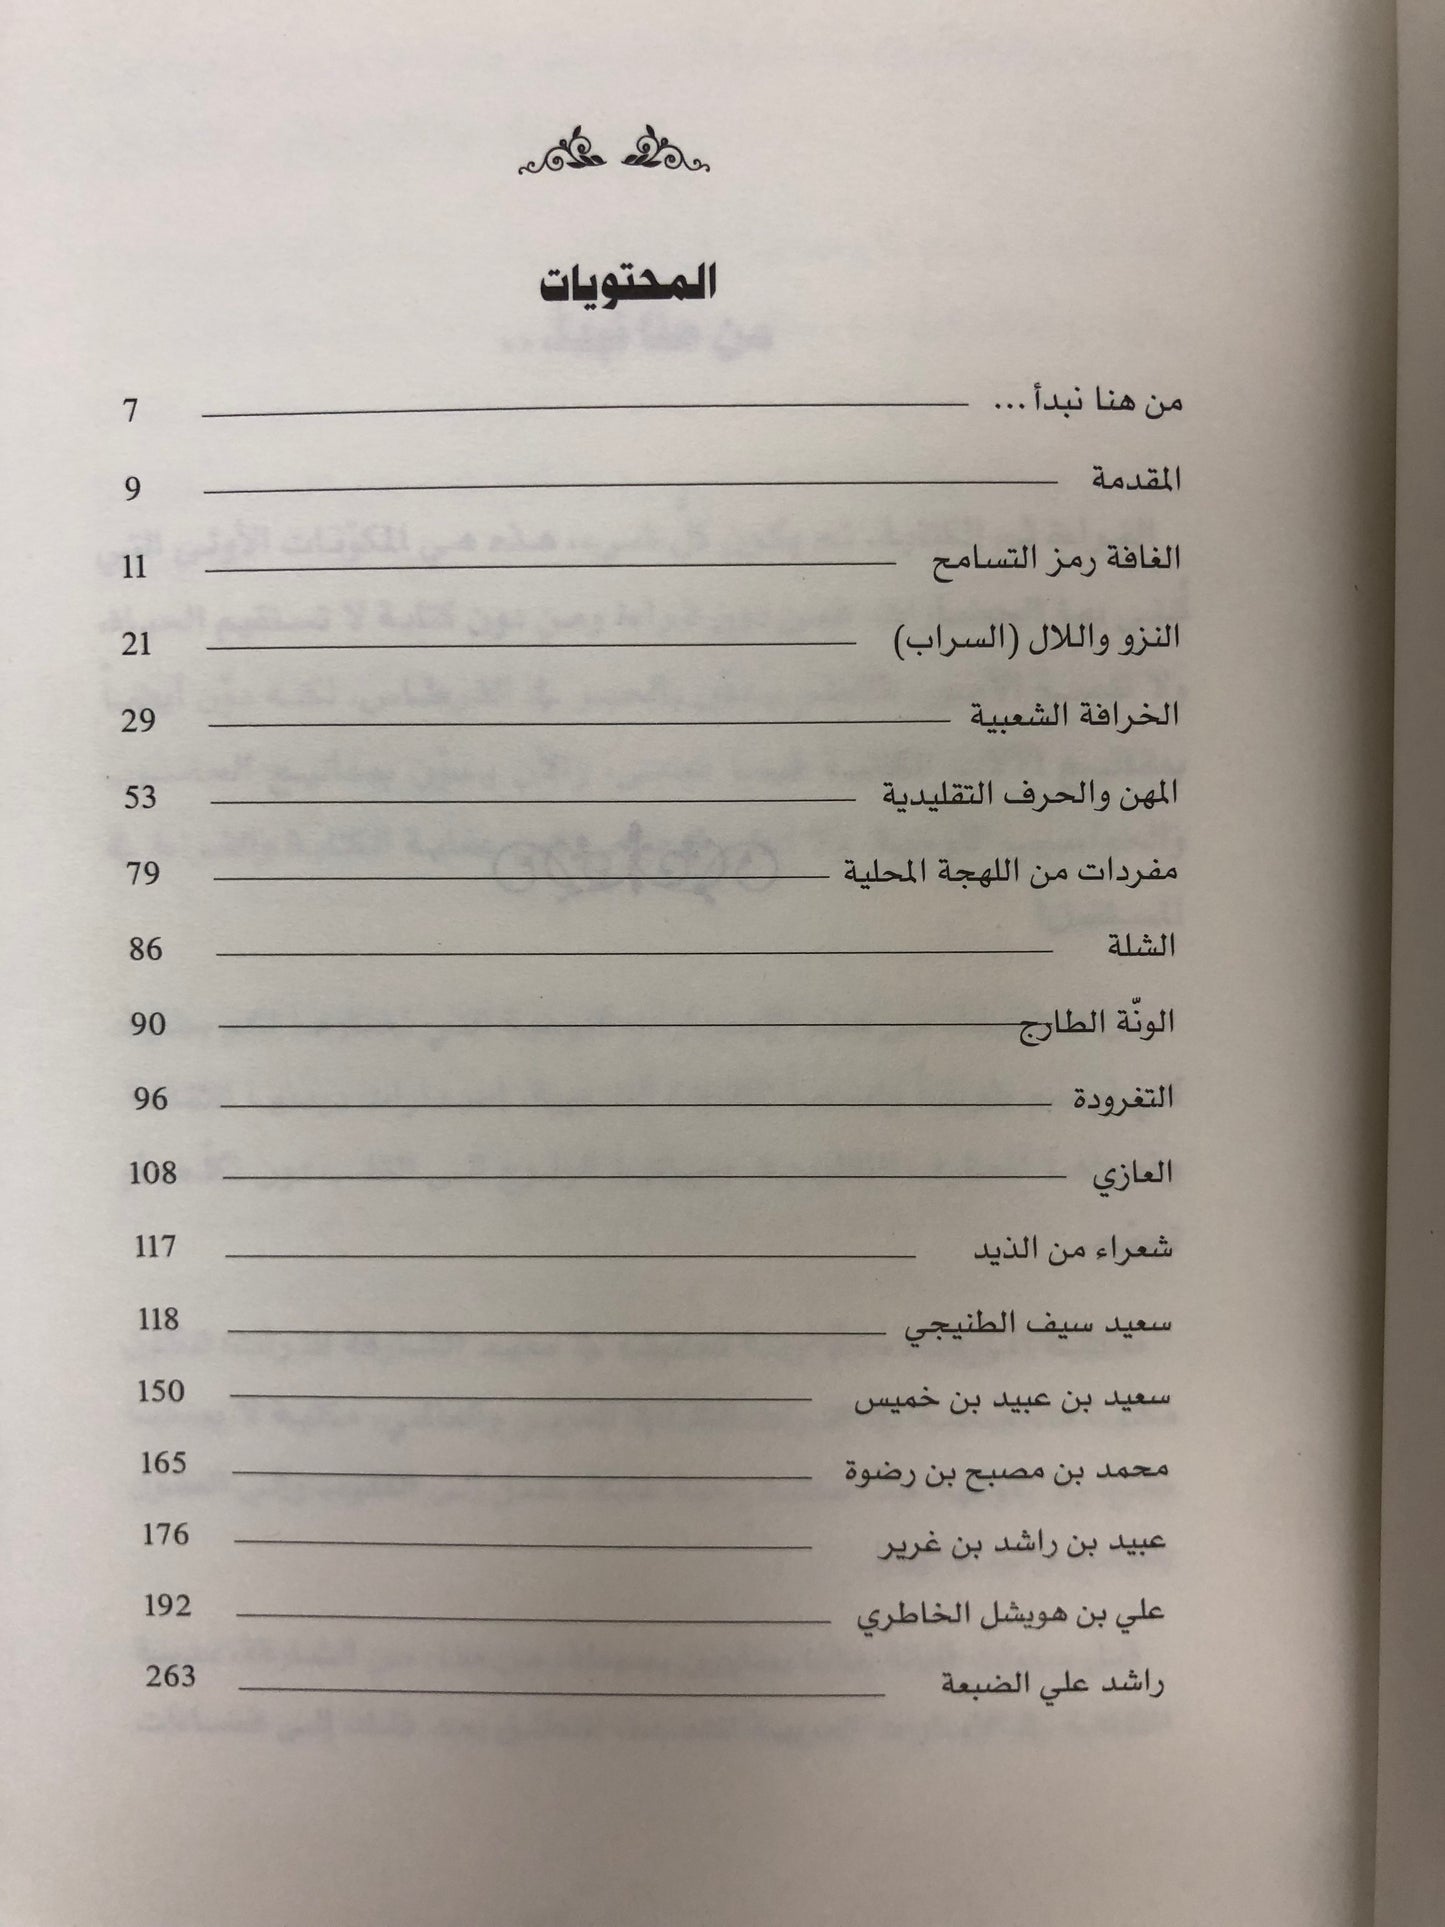 المحتويات
من هنا نبدأ... 7
المقدمة 9
الغافة رمز التسامح 11
النزو واللال (السراب) 21
الخرافة الشعبية 29
المهن والحرف التقليدية 53
مفردات من اللهجة المحلية 79
الشلة 86
الونّة الطارج 90
التغرودة 96
العازي 108
شعراء من الذيد 117
سعيد سيف الطنيجي 118
سعيد بن عبيد بن خميس 150
محمد بن مصبح بن رضوة 165
عبيد بن راشد بن غرير 176
علي بن هويشل الخاطري 192
راشد علي الضبعة 263